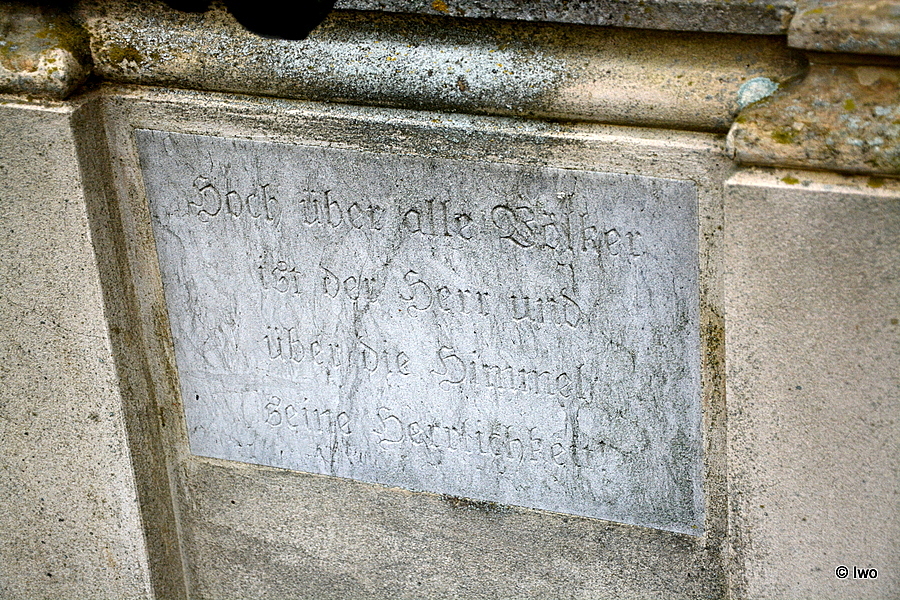 Hoch über alle Völker
ist der Herr und
über die Himmel
seine Herrlichkeit!
© Iwo